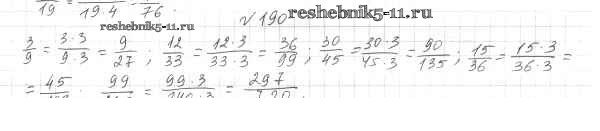 19 = 19·4 = 76.
№190 reshebnik5-11.ru
reshebnik5-11.ru
3/9 = 3·3/9·3 = 9/27; 12/33 = 12·3/33·3 = 36/99; 30/45 = 30·3/45·3 = 90/135; 15/36 = 15·3/36·3 =
= 45. 99 = 99·3 = 297